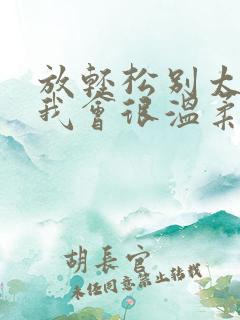 放轻松别太
我会很温柔
胡長官
未经同意禁止转载